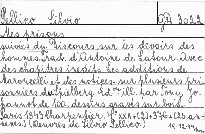 Pellico Silvio
8° 3022
Mes prisons
suivies du Discours sur les devoirs des
hommes, trad. d'Antoine de Latour. Avec
des chapitres inédits, les additions de
Maroncelli et des notices sur plusieurs pri-
sonniers du Spielberg. 4e éd. ill. par Tony Jo-
hannot de 100 dessins gravés sur bois.
Paris 1843 Charpentier. 4° XXX+(2)+376+(25 gra-
vures). (Oeuvres de Silvio Pellico.)